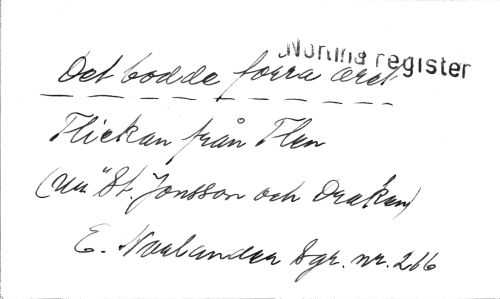 Norlind register
Det bodde förra året
Flickan från Flen
(ur "St. Jonsson och Draken)
E. Norlander Sgr. nr. 266